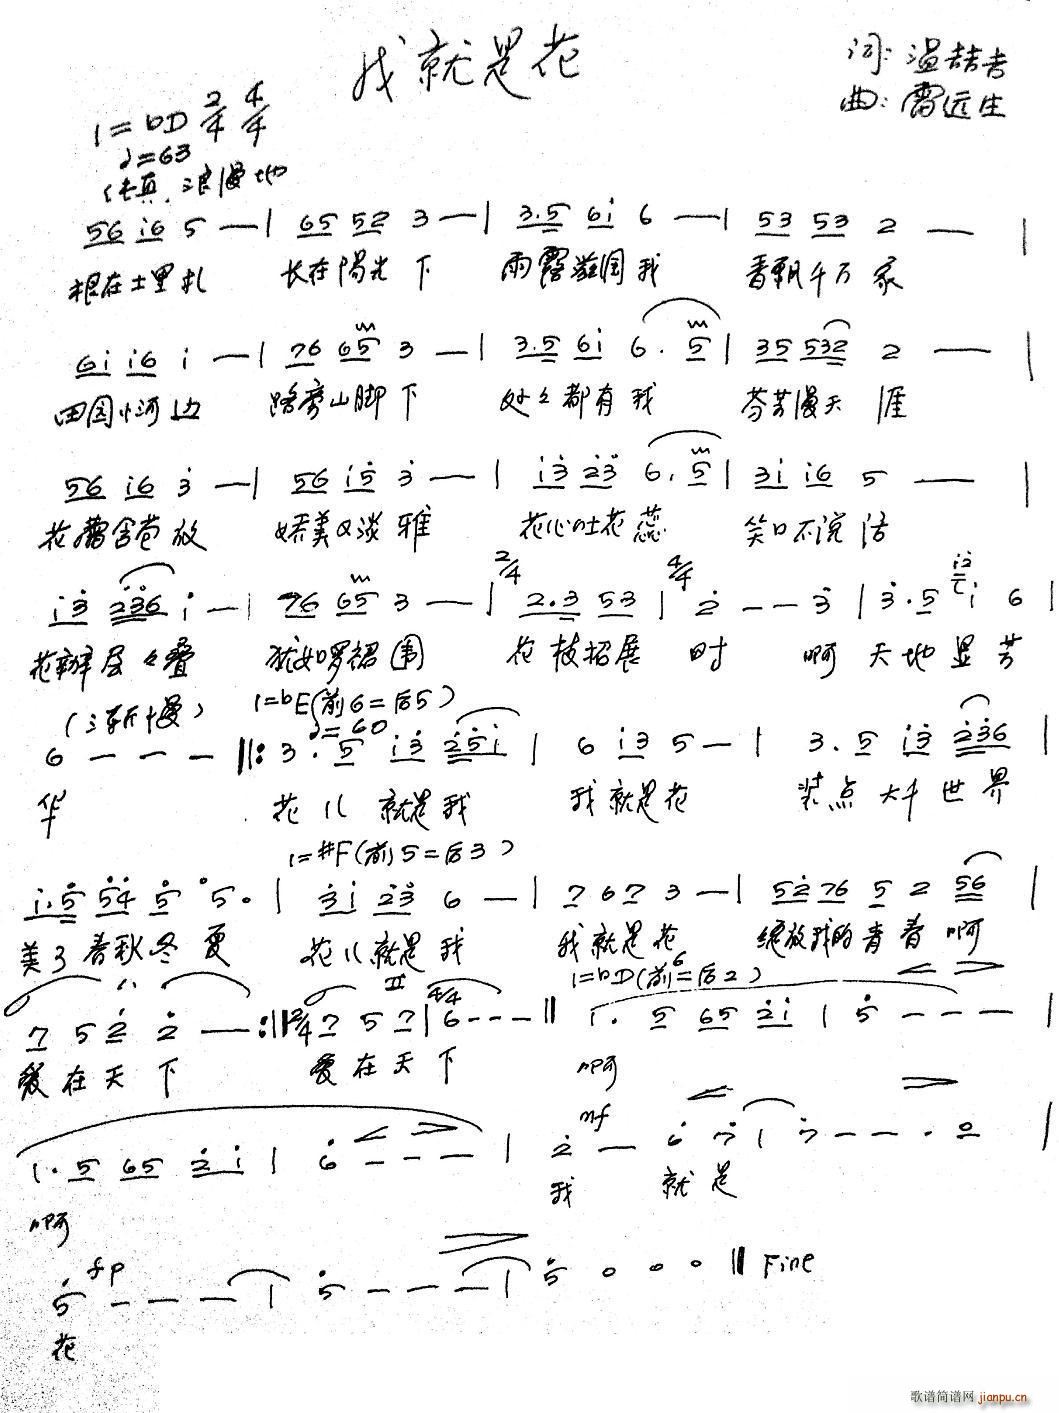 我就是花
词:温喆吉
曲:雷远生
1=bD 2/4 4/4
♩=63
纯真.浪漫地
56 i6 5 — | 65 52 3 — | 3.5 6i 6 — | 53 53 2 — |
根在土里扎 长在阳光下 雨露滋润我 香飘千万家
6i i6 i — | 76 65 3 — | 3.5 6i 6. 5 | 35 532 2 — |
田园小河边 路旁山脚下 处々都有我 芬芳漫天涯
56 i6 3 — | 56 i5 3 — | i3 23 6. 5 | 3i i6 5 — |
花蕾含苞放 娇美又淡雅 花心吐花蕊 笑口不说话
i3 236 i — | 76 65 3 — | 2/4 2.3 53 | 4/4 2 — — 3 | 3.5 i2 i 6 |
花瓣层々叠 犹如罗裙围 花枝招展时 啊 天地显芳
(渐慢) 1=bE(前6=后5)
♩=60
6 — — — ‖: 3. 5 i3 25i | 6 i3 5 — | 3. 5 i3 236 |
华 花儿就是我 我就是花 装点大千世界
1=#F(前5=后3)
i.5 54 5 5. | 3i 23 6 — | 7 67 3 — | 52 76 5 2 56 |
美了春秋冬夏 花儿就是我 我就是花 绽放我的青春啊
1=bD(前6=后2)
7 5 2 2 — :‖ II 2/4 7 5 7 | 4/4 6 - - - ‖ 1. 5 65 2i | 5 - - - |
爱在天下 爱在天下 啊
mf
1. 5 65 2 i | 6 - - - | 2 — 6 7 | 7 - - . 0 |
啊 我 就是
fp
5 - - - | 5 - - - | 5 0 0 0 ‖ Fine
花
歌谱简谱网 jianpu.cn